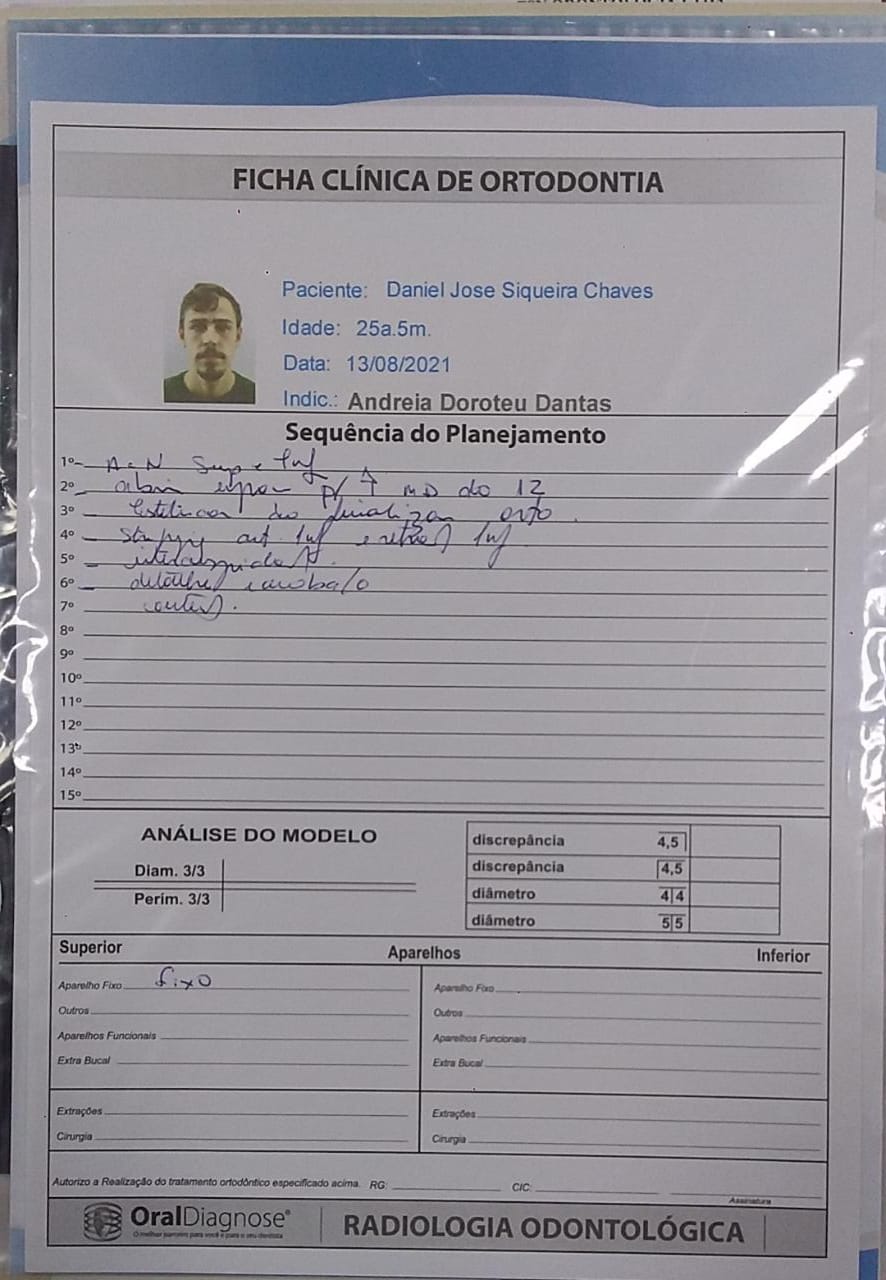 FICHA CLÍNICA DE ORTODONTIA
Paciente: Daniel Jose Siqueira Chaves
Idade: 25a.5m.
Data: 13/08/2021
Indic.: Andreia Doroteu Dantas
Sequência do Planejamento
1º A-N Sup e Inf
2º abrir p/ ↑ MD do 12
3º finalizar orto.
4º Inf Inf
5º
6º
7º
8º
9º
10º
11º
12º
13º
14º
15º
ANÁLISE DO MODELO
Diam. 3/3
Perím. 3/3
discrepância 4,5
discrepância 4,5
diâmetro 4|4
diâmetro 5|5
Superior Aparelhos Inferior
Aparelho Fixo fixo Aparelho Fixo
Outros Outros
Aparelhos Funcionais Aparelhos Funcionais
Extra Bucal Extra Bucal
Extrações Extrações
Cirurgia Cirurgia
Autorizo a Realização do tratamento ortodôntico especificado acima. RG: CIC:
Assinatura
OralDiagnose® RADIOLOGIA ODONTOLÓGICA
O melhor parceiro para você e para o seu dentista